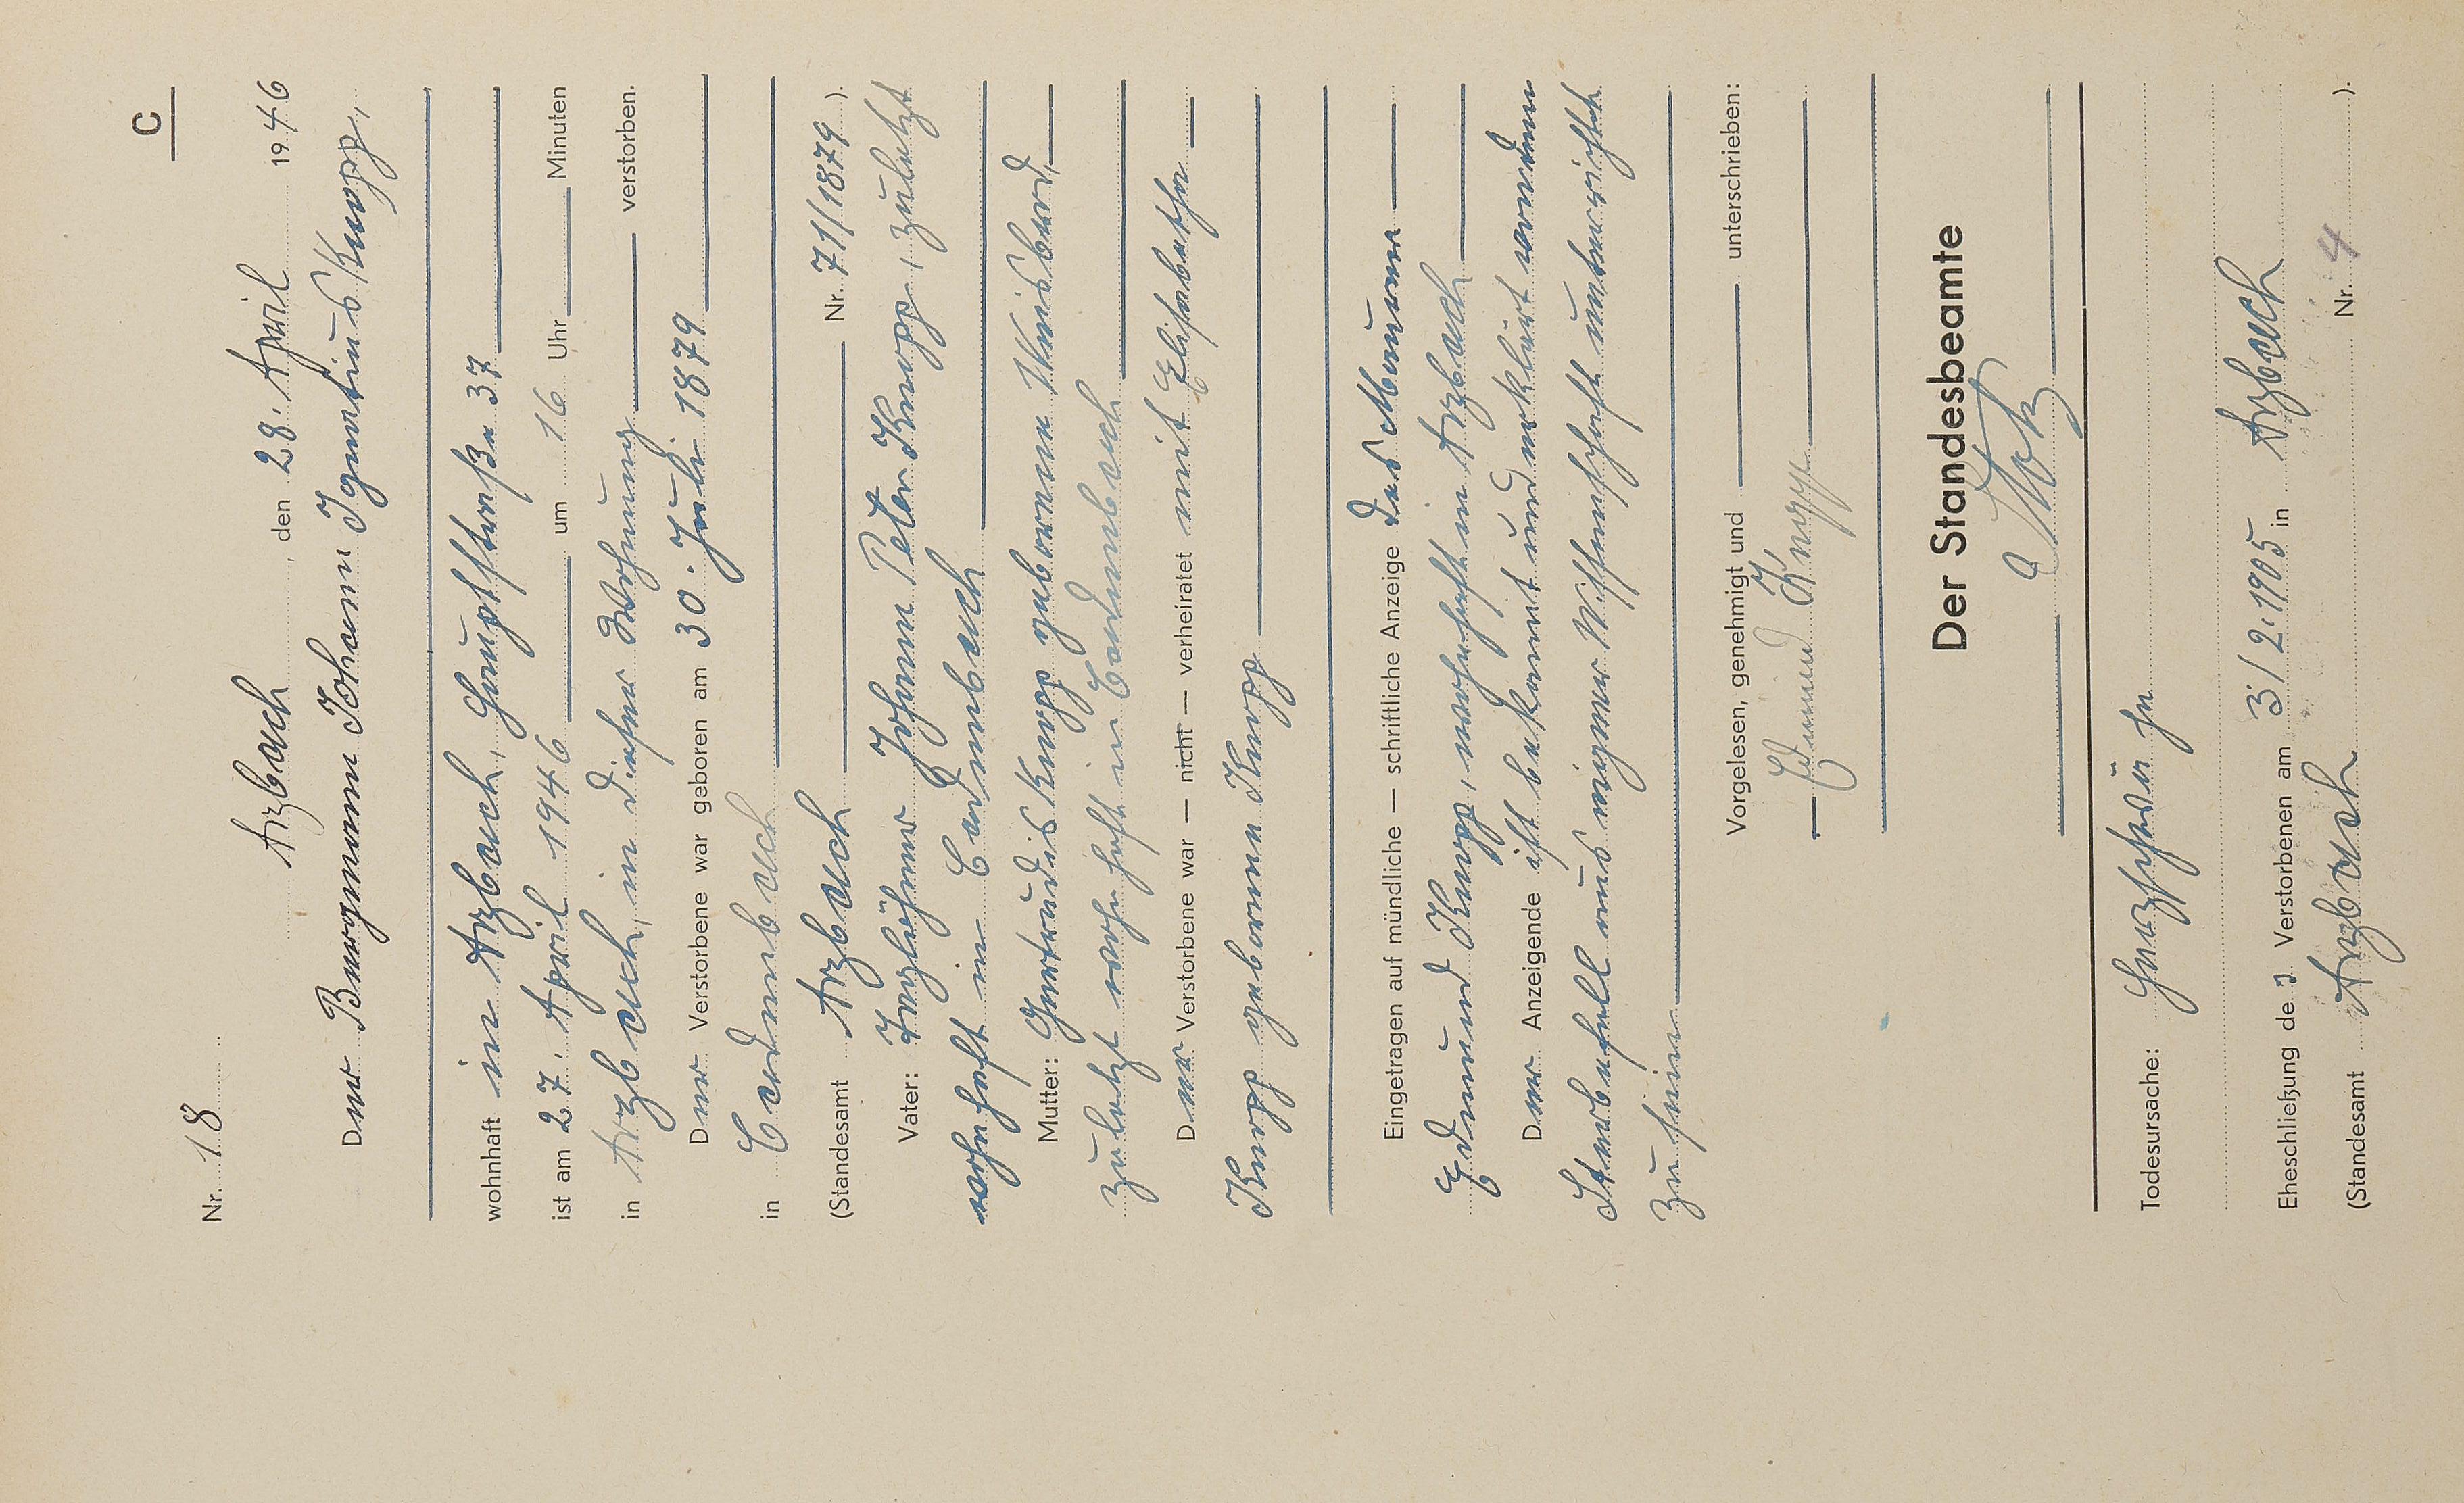 C
Nr. 18
Arzbach, den 28. April 1946
Der Bergmann Johann Ignatius Knopp,
wohnhaft in Arzbach, Hauptstraße 37
ist am 27. April 1946 um 16 Uhr Minuten
in Arzbach, in dieser Wohnung verstorben.
Der Verstorbene war geboren am 30. Juli 1879
in Cadenbach
(Standesamt Arzbach Nr. 71/1879).
Vater: Taglöhner Johann Peter Knopp, zuletzt
wohnhaft in Cadenbach
Mutter: Gertrudis Knopp geborene
zuletzt wohnhaft in Cadenbach
Der Verstorbene war — nicht — verheiratet mit Elisabetha
Knopp geborene Knopp
Eingetragen auf mündliche — schriftliche Anzeige des
Edmund Knopp, wohnhaft in Arzbach
Der Anzeigende ist bekannt und erklärt von dem
Sterbefall aus eigener Wissenschaft unterrichtet
zu sein
Vorgelesen, genehmigt und unterschrieben:
Edmund Knopp
Der Standesbeamte
Todesursache: Herzschwäche
Eheschließung des Verstorbenen am 3/2.1905 in Arzbach
(Standesamt Arzbach Nr. 4).